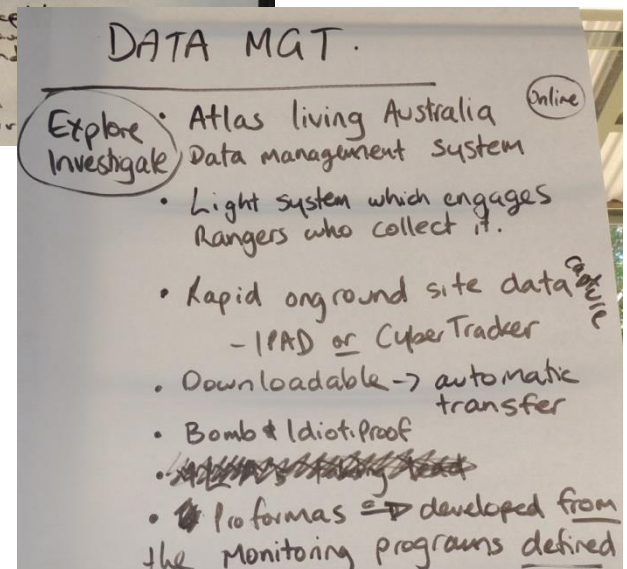 DATA MGT.
Explore
Investigate
Online
• Atlas living Australia
Data management system
• Light system which engages
Rangers who collect it.
• Rapid onground site data capture
- IPAD or CyberTracker
• Downloadable → automatic
transfer
• Bomb & Idiotiproof
• Proformas ⇒ developed from
the Monitoring programs defined